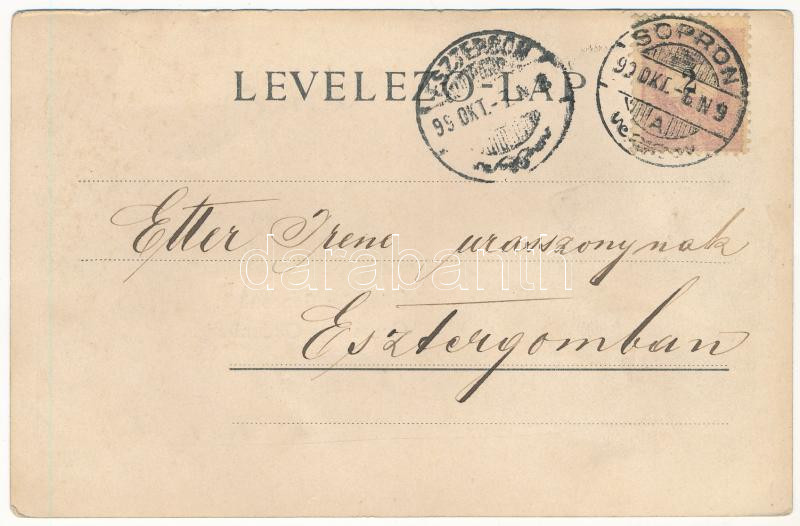 LEVELEZŐ-LAP
ESZTERGOM
99 OKT. -7. N
SOPRON
99 OKT. -6. N 9
A
2
Etter Irene urasszonynak
darabanth
Esztergomban